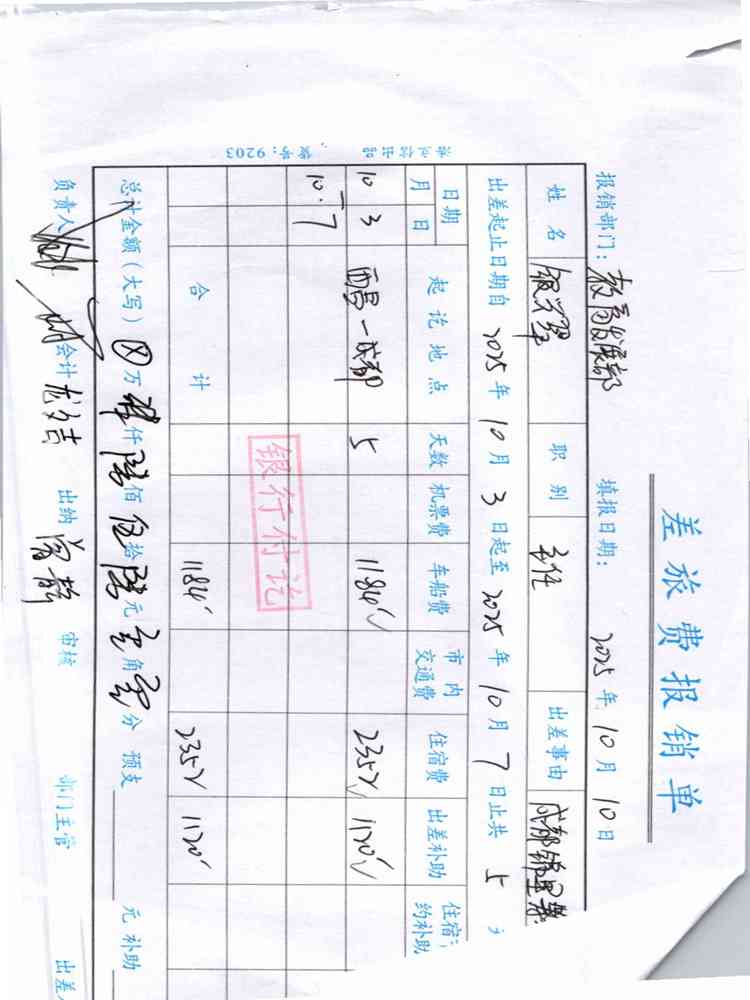 差旅费报销单
报销部门：教育发展部 填报日期：2025年10月10日
姓名 职别 主任 出差事由 成都
出差起止日期自 2025年10月3日起至2025年10月7日止共5
日期 起讫地点 天数 机票费 车船费 市内交通费 住宿费 出差补助 住宿 约补助
月 日
10 3 西昌—成都 5 1184 2352 1120
10.7
银行付讫
合计 1184 2352 1120
总计金额（大写） 万肆仟陆佰伍拾陆元零角零分 预支 元 补助
负责人 会计 出纳 曾静 审核 部门主管 出差
货号：9203